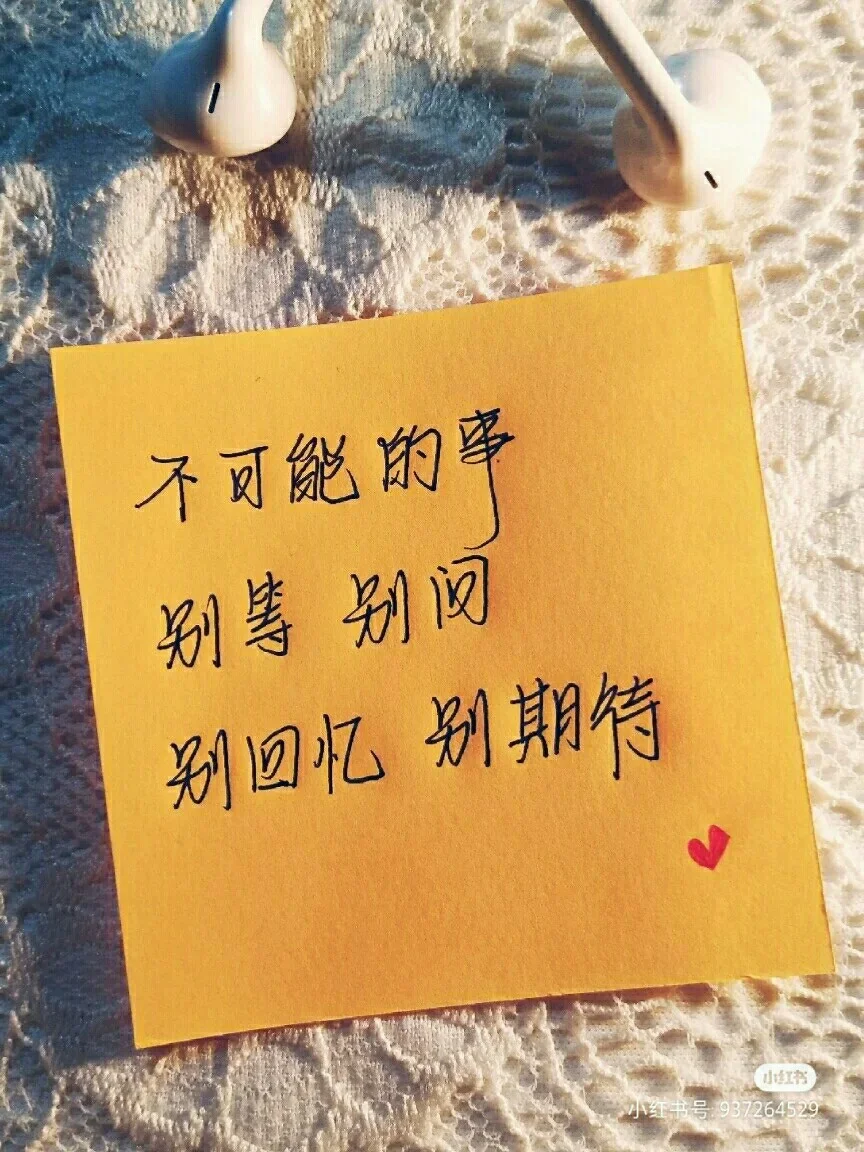 不可能的事
别等 别问
别回忆 别期待
小红书
小红书号: 937264529